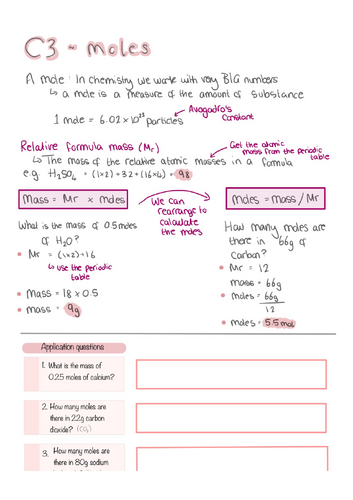 C3 ~ moles
A mole: In chemistry we work with very BIG numbers
↳ a mole is a measure of the amount of substance
1 mole = 6.02 × 10²³ particles
Avogadro's
Constant
Relative formula mass (Mr)
Get the atomic
mass from the periodic
table
↳ The mass of the relative atomic masses in a formula
e.g. H₂SO₄ = (1×2)+32+(16×4) = 98
Mass = Mr × moles
We can
rearrange to
calculate
the moles
moles = mass / Mr
What is the mass of 0.5 moles
of H₂O?
• Mr = (1×2)+16
↳ use the periodic
table
• Mass = 18 × 0.5
• mass = 9g
How many moles are
there in 66g of
carbon?
• Mr = 12
mass = 66g
• moles = 66g
12
• moles = 5.5 mol
Application questions
1. What is the mass of
0.25 moles of calcium?
2. How many moles are
there in 22g carbon
dioxide? (CO₂)
3. How many moles are
there in 80g sodium